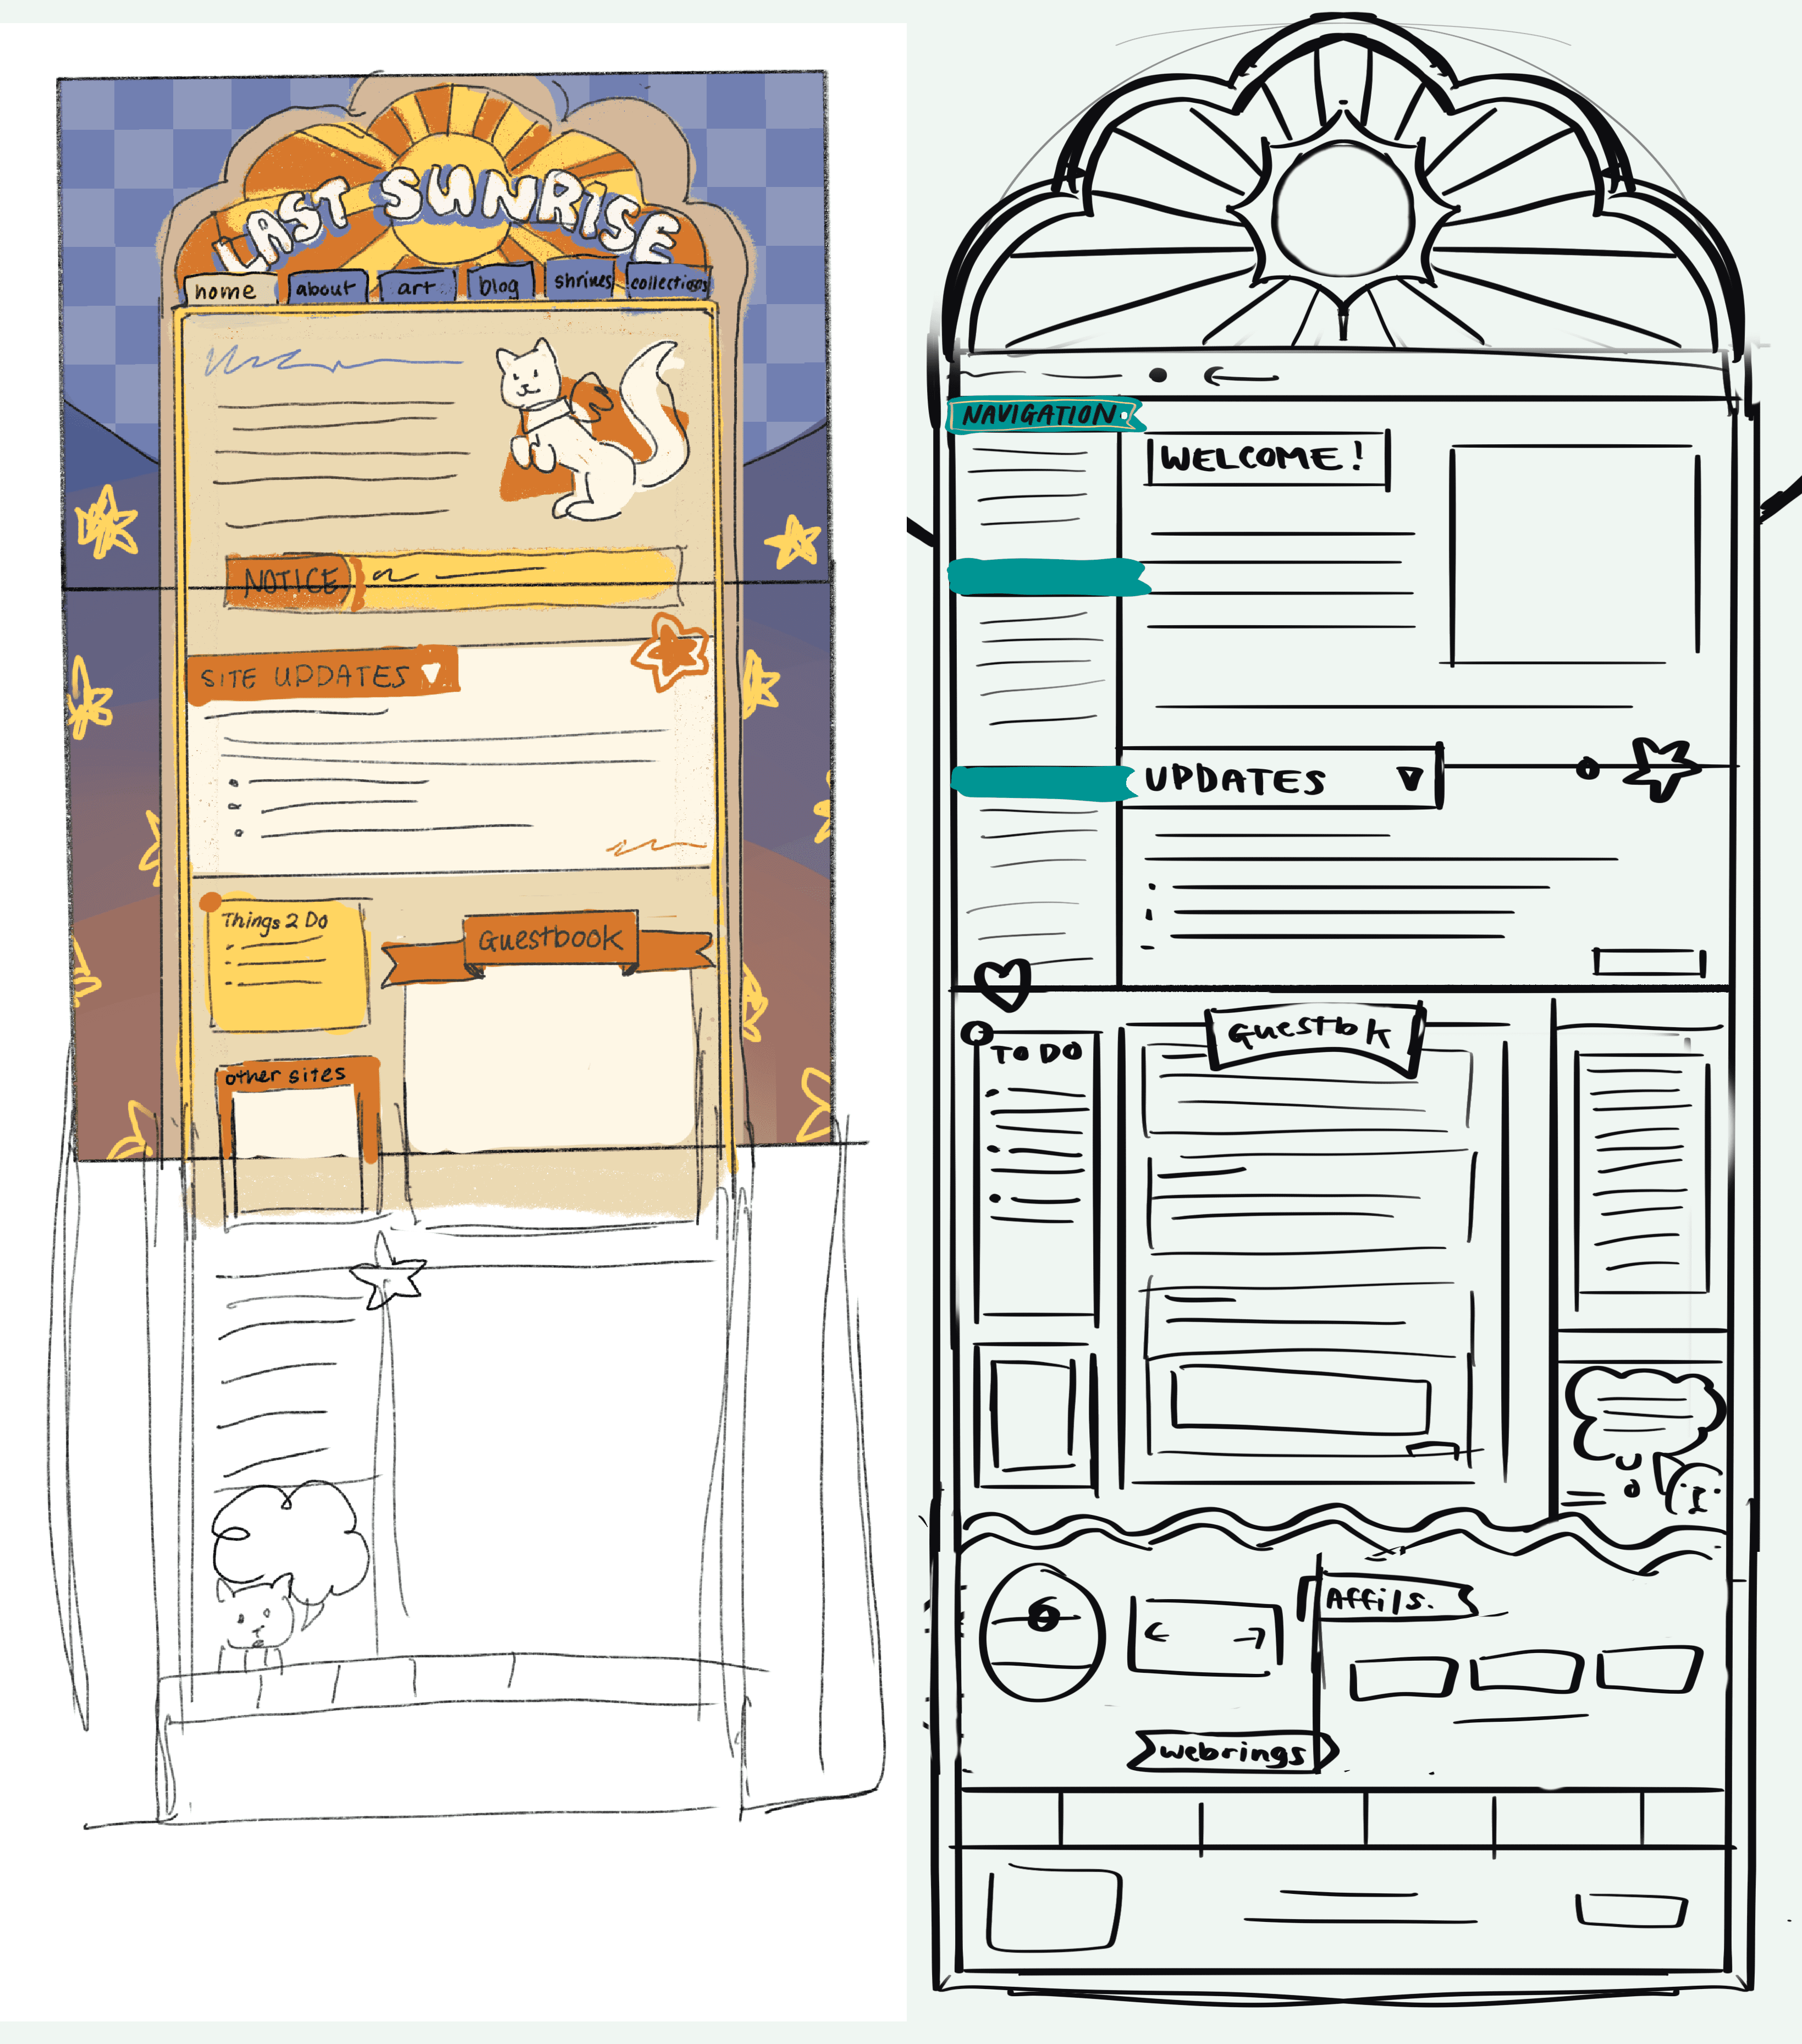 LAST SUNRISE
home about art blog shrines collections
NOTICE
SITE UPDATES
Things 2 Do
Guestbook
other sites
NAVIGATION
WELCOME!
UPDATES
TO DO
Guestbk
Affils.
webrings